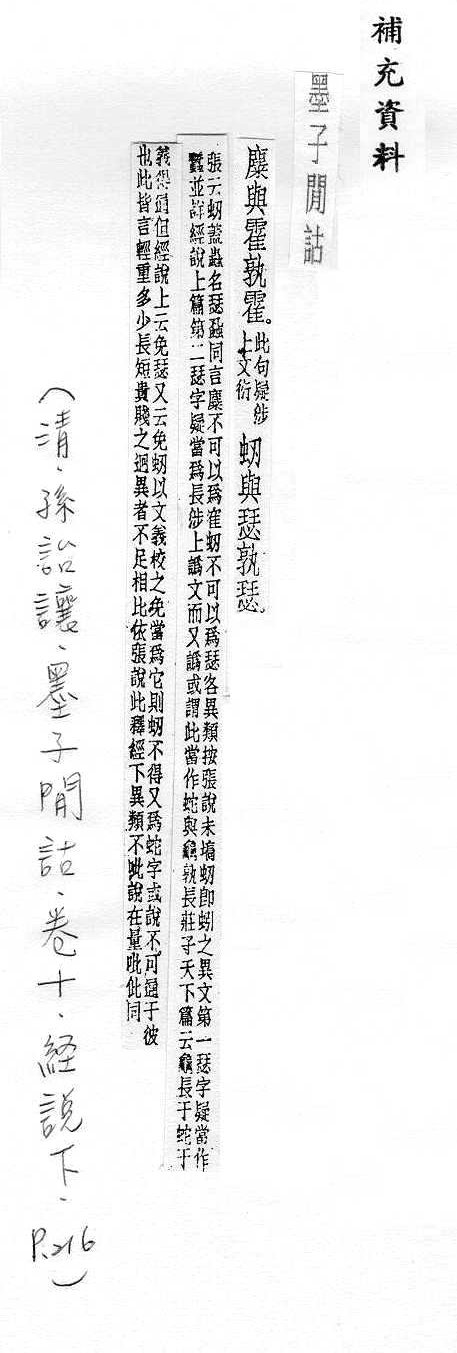 補充資料
墨子閒詁
麋與霍孰霍。此句疑涉上文衍 蚓與瑟孰瑟。
張云蚓蓋蟲名瑟蝨同言麋不可以爲霍蚓不可以爲瑟各異類按張說未塙蚓卽蚓之異文第一瑟字疑當作
蠶並詳經說上篇第二瑟字疑當爲長涉上譌文而又譌或謂此當作蛇與龜孰長莊子天下篇云龜長于蛇于
義得通但經說上云免瑟又云免蚓以文義校之免當爲它則蚓不得又爲蛇字或說不可通于彼
也此皆言輕重多少長短貴賤之迥異者不足相比依張說此釋經下異類不吡說在量吡仳同
(清．孫詒讓．墨子閒詁．卷十．経說下．P.216)